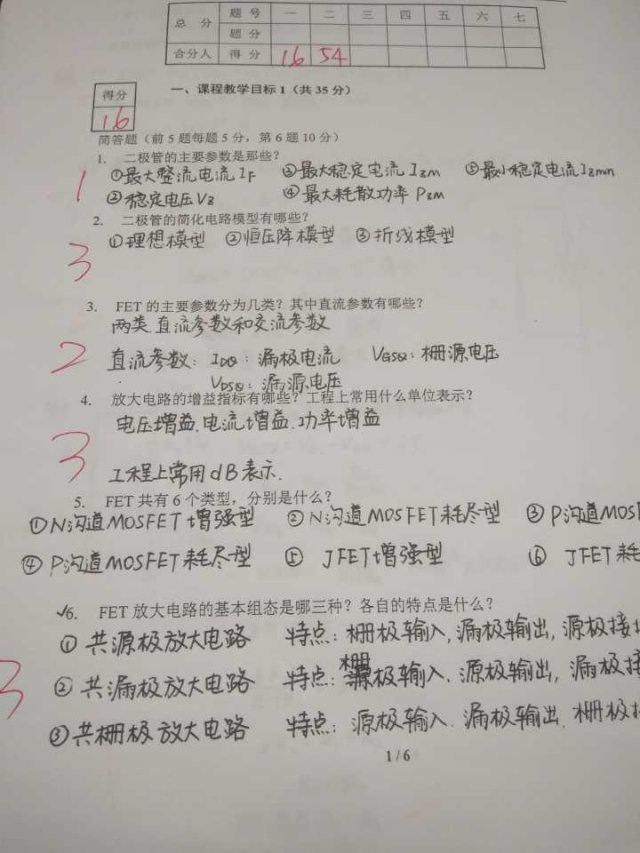 总 分 题 号 一 二 三 四 五 六 七
题 分
合分人 得 分 16 54
得分
16
一、课程教学目标1（共35分）
简答题（前5题每题5分，第6题10分）
1. 二极管的主要参数是那些？
1 ①最大整流电流IF ③最大稳定电流Izm ⑤最小稳定电流Izmn
②稳定电压Vz ④最大耗散功率Pzm
2. 二极管的简化电路模型有哪些？
3 ①理想模型 ②恒压降模型 ③折线模型
3. FET的主要参数分为几类？其中直流参数有哪些？
两类 直流参数和交流参数
2 直流参数：IDQ：漏极电流 VGSQ：栅源电压
VDSQ：漏源电压
4. 放大电路的增益指标有哪些？工程上常用什么单位表示？
电压增益.电流增益.功率增益
3 工程上常用dB表示.
5. FET共有6个类型，分别是什么？
①N沟道MOSFET增强型 ②N沟道MOSFET耗尽型 ③P沟道MOSF
④P沟道MOSFET耗尽型 ⑤ JFET增强型 ⑥ JFET耗
√6. FET放大电路的基本组态是哪三种？各自的特点是什么？
①共源极放大电路 特点：栅极输入,漏极输出,源极接
3 ②共漏极放大电路 特点：栅极输入.源极输出,漏极接
③共栅极放大电路 特点：源极输入.漏极输出.栅极接
1 / 6